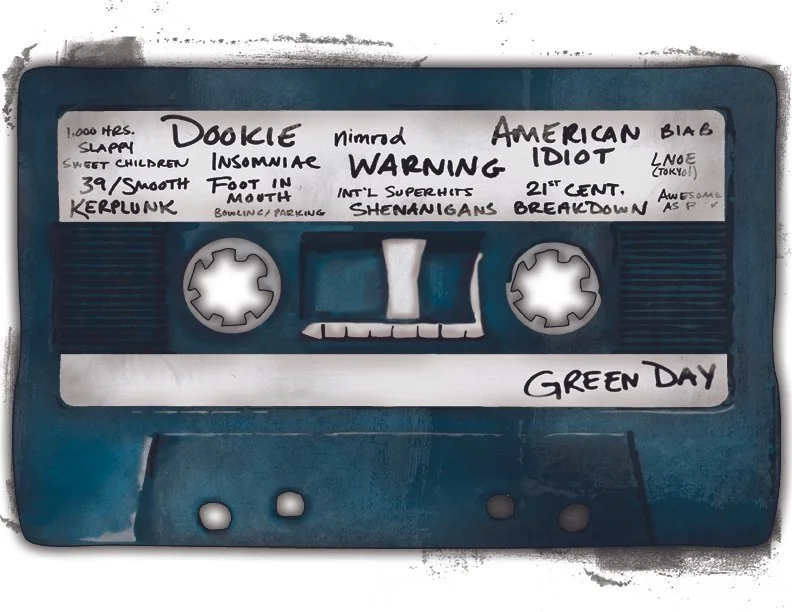 1,000 HRS.
SLAPPY
SWEET CHILDREN
39/SMOOTH
KERPLUNK
DOOKIE
INSOMNIAC
FOOT IN
MOUTH
BOWLING/PARKING
nimrod
WARNING
INT'L SUPERHITS
SHENANIGANS
AMERICAN
IDIOT
21ST CENT.
BREAKDOWN
BIAB
LNOE
(TOKYO!)
AWESOME
AS F K
GREEN DAY